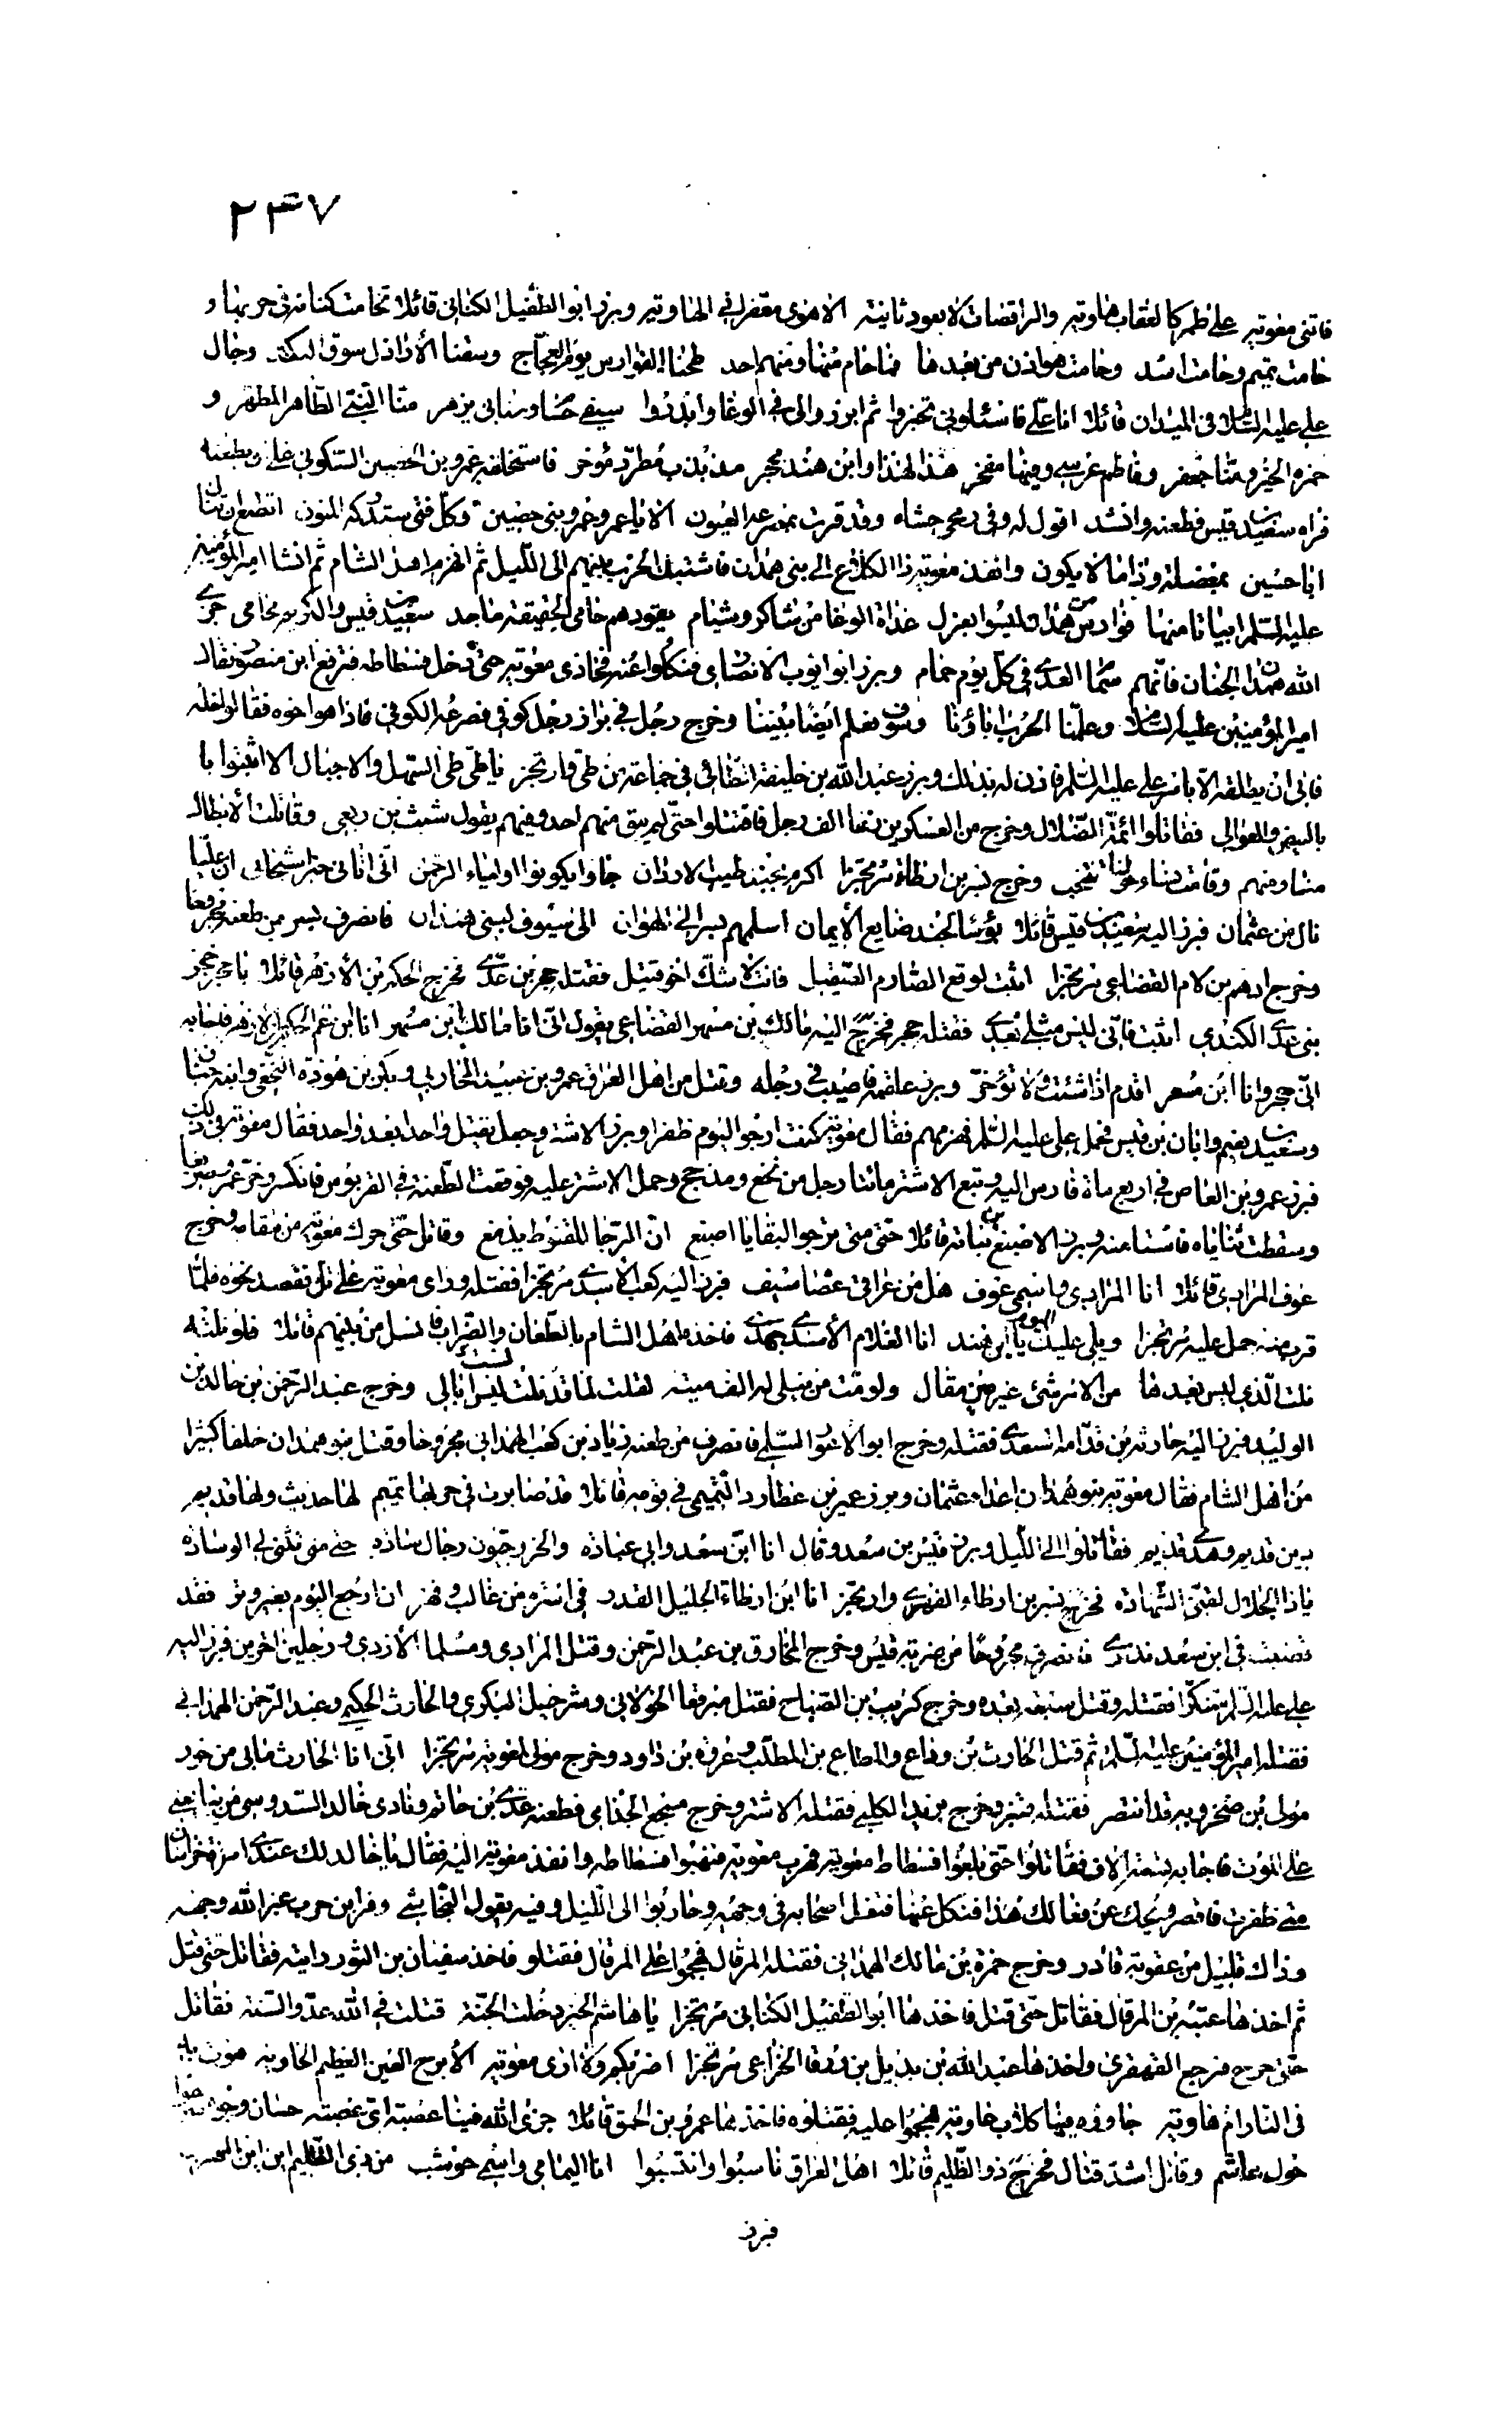 ٢٣٧
فاتنى معوية على طهر كالعقاب هاوية والراقصات لا بعود ثانية الا هوى معفرا في الهاوية وبرز ابو الطفيل الكناني قائلا تحامت كنانة في حربها و
خامت تميم وخامت اسد وخامت هوازن من بعدها فما خام منها ومنهم احد طحنا الفوارس يوم العجاج وسقنا الأراذل سوق النكد وجال
علي عليه السلام في الميدان قائلا انا علي فاسئلوني تخبروا ثم ابرزوا لي في الوغا وابدروا سيفي حسام وسناني يزهر منا النبي الطاهر المطهر و
حمزة الخير ومنا جعفر وفاطم عرسي وفيها مفخر هذا لهذا وابن هند محجر مذبذب مطرد مؤخر فاستخلفه عمرو بن الحصين السكوني على ان يطعنه
فراه سعيد بن قيس فطعنه وانشد اقول له وفي رمحي حشاه وقد قرت بمصرعه العيون الا يا عمرو عمرو بني حصين وكل فتى ستدركه المنون اتطمع ان تنال
ابا حسين بمعضلة وذا ما لا يكون وانفذ معوية ذا الكلاع الى بني همدان فاشتبك الحرب بينهم الى الليل ثم انهزم اهل الشام ثم انشا امير المؤمنين
عليه السلم ابياتا منها فوارس من همدان ليسوا بعزل غداة الوغا من شاكر وشبام يقودهم حامي الحقيقة ماجد سعيد بن قيس والكريم محامي جزى
الله همدان الجنان فانهم سمام العدى في كل يوم حمام وبرز ابو ايوب الانصاري فنكلوا عنه فحاذى معوية حتى دخل فسطاطه فترفع ابن منصور فقال
امير المؤمنين عليه السلام وعلمنا الحرب اباؤنا وسوف نعلم ايضا بنينا وخرج رجل في براز رجل كوفي فصرعه الكوفي فاذا هو اخوه فقالوا خله
فابى ان يطلقه الا بامر علي عليه السلم فاذن له بذلك وبرز عبد الله بن خليفة الطائي في جماعة من طي وارتجز يا طي طي السهل والاجبال الا اثبتوا با
بالبيض والعوالي فقاتلوا ائمة الضلال وخرج من العسكرين زهاء الف رجل فاقتتلوا حتى لم يبق منهم احد وفيهم يقول شبث بن ربعي وقاتلت الأبطال
منا ومنهم وقامت نساء حولنا تنتحب وخرج بسر بن ارطاة مرتجزا اكرم بجند طيب الاردان جاؤا يكونوا اولياء الرحمن اني اتاني خبر اشجاني ان عليا
نال من عثمان فبرز اليه سعيد بن قيس قائلا بؤسا لجند ضايع الأيمان اسلمهم بسر الى الهوان الى سيوف لبني همدان فانصرف بسر من طعنه مجروحا
وخرج ادهم بن لام القضاعي مرتجزا اثبت لوقع الصارم الصقيل فانت لا شك اخو قتيل فقتله حجر بن عدي فخرج الحكم بن الأزهر قائلا يا حجر حجر
بني عدي الكندي اثبت فاني ليس مثلي بعدي فقتله حجر فخرج اليه مالك بن مسهر القضاعي يقول اني انا مالك ابن مسهر انا ابن عم الحكم بن الازهر فاجابه
اني حجر وانا ابن مسعر اقدم اذا شئت ولا تؤخر وبرز علقمة فاصيب في رجله وقتل من اهل العراق عمرو بن عبيد المحاربي وبكر بن هوذة النخعي وابنه حنان
وسعيد بن نعيم وابان بن قيس فحمل علي عليه السلم فهزمهم فقال معوية كنت ارجو اليوم ظفرا وبرز الاشتر وجعل يقتل واحدا بعد واحد فقال معوية في ذلك
فبرز عمرو بن العاص في اربع مائة فارس اليه وتبع الاشتر مائتا رجل من نخع ومذحج وحمل الاشتر عليه فوقعت الطعنة في القربوس فانكسر وخر عمرو صريعا
وسقطت ثناياه فاستاعنه وبرز الاصبغ بن نباتة قائلا حتى متى ترجوا البقايا اصبغ ان الرجا للقنوط يدمغ وقاتل حتى حرك معوية من مقامه وخرج
عوف المرادي قائلا انا المرادي واسمي عوف هل من عراقي عصاه سيف فبرز اليه كعب الاسدي مرتجزا فقتله وراى معوية على تل فقصد نحوه فلما
قرب منه حمل عليه مرتجزا ويلي عليك يا ابن هند اليوم انا الغلام الأسدي حمدي فاخذه اهل الشام بالطعان والضراب فانسل من بينهم قائلا فلو نلته
نلت الذي ليس بعدها من الامر شئ غير مين مقال ولو مت من نيلي له الف ميتة لقلت لما قد نلت لست ابالي وخرج عبد الرحمن بن خالد بن
الوليد فبرز اليه حارثة بن قدامة السعدي فقتله وخرج ابو الاعور السلمي فانصرف من طعنه زياد بن كعب الهمداني مجروحا وقتل بنو همدان خلقا كثيرا
من اهل الشام فقال معوية بنو همدان اعداء عثمان وبرز عمير بن عطارد التميمي في قومه قائلا قد ضاربت في حربها تميم لها حديث ولها قديم
دين قديم وهدى قديم فقاتلوا الى الليل وبرز قيس بن سعد وقال انا ابن سعد وابي عبادة والخزرجيون رجال سادة حتى متى تثنى لي الوسادة
يا ذا الجلال لقني الشهادة فخرج بسر بن ارطاة الفهري وارتجز انا ابن ارطاة الجليل القدر في اسرة من غالب وفهر ان ارجع اليوم بغير وتر فقد
قضيت في ابن سعد نذري فانصرف مجروحا من ضربة قيس وخرج المخارق بن عبد الرحمن وقتل المرادي ومسلما الأزدي ورجلين اخرين فبرز اليه
علي عليه السلم متنكرا فقتله وقتل سبعة بعده وخرج كريب بن الصباح فقتل مبرقعا الخولاني وشرحبيل البكري والحارث الحكيمي وعبد الرحمن الهمداني
فقتله امير المؤمنين عليه السلم ثم قتل الحارث بن وداع والمطاع بن المطلب وعروة بن داود وخرج مولى لمعوية مرتجزا اني انا الحارث ما بي من خور
مولى بن صخر وبه قد انتصر فقتله قنبر وخرج بريد الكلبي فقتله الاشتر وخرج مسجع الجذامي فطعنه عدي بن حاتم ونادى خالد السدوسي من يبايعني
على الموت فاجابه تسعة الاف فقاتلوا حتى بلغوا فسطاط معوية فهرب معوية فنهبوا فسطاطه وانفذ معوية اليه فقال يا خالد لك عندي امرة خراسان
متى ظفرت فاقصر ويحك عن فعالك هذا فنكل عنها فتفل اصحابه في وجهه وحاربوا الى الليل وفيه يقول النجاشي وفر ابن حرب غبر الله وجهه
وذاك قليل من عقوبة قادر وخرج حمزة بن مالك الهمداني فقتله المرقال فهجموا على المرقال فقتلوه فاخذ سفيان بن الثور رايته فقاتل حتى قتل
ثم اخذها عتبة بن المرقال فقاتل حتى قتل فاخذها ابو الطفيل الكناني مرتجزا يا هاشم الخير دخلت الجنة قتلت في الله عدو السنة فقاتل
حتى جرح فرجع القهقرى واخذها عبد الله بن بديل بن ورقا الخزاعي مرتجزا اضربكم ولا ارى معوية الأبرج العين العظيم الحاوية هوت به
في النار ام هاوية جاوره فيها كلاب عاوية فهجموا عليه فقتلوه فاخذها عمرو بن الحمق قائلا جزى الله فينا عصبة اي عصبة حسان وجوه صرعوا
حول هاشم وقاتل اشد قتال فخرج ذو الظليم قائلا اهل العراق ناسبوا وانتسبوا انا اليماني واسمي حوشب من ذي الظليم اين اين المهرب
فبرز